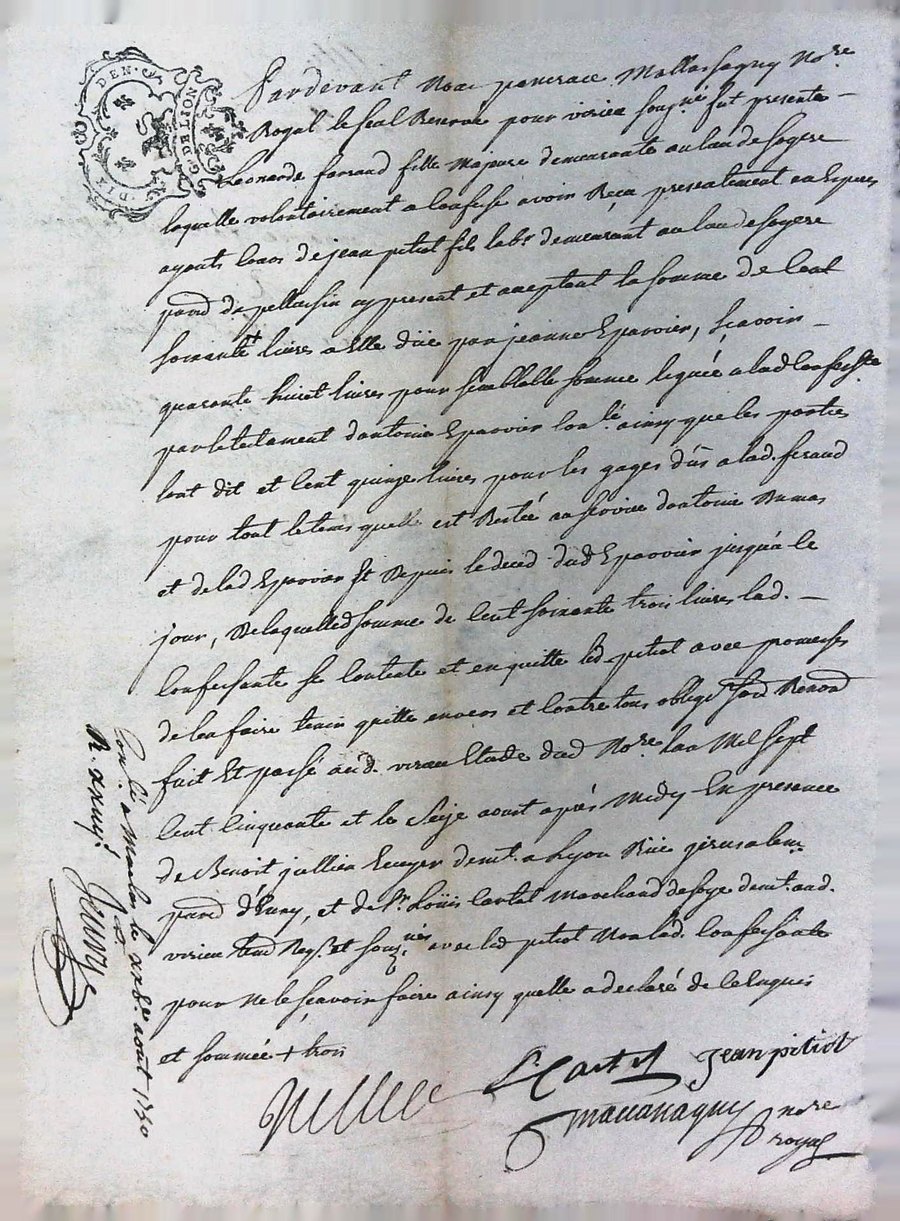 DEN.
G. DE LION
Pardevant Nous pancrace Mallassagny No.re
Royal le seal Reservé pour virieu sougné fut presente –
Leonarde faraud fille Majure demeurante au lau de soyere
laquelle volontairement a confessé avoir Reçu presentement en Especes
ayants cours de jean pitiot fils lab.r demeurant au lau de soyere
paroisse de pellussin cy present et aceptant la somme de Cent
soixante + livres a Elle düe par jeanne Eparvier, sçavoir –
quarante huict livres pour semblable somme leguée a lad. confess.te
par le testament d'antoine Eparvier ainsy que les parties
l'ont dit et Cent quinze livres pour les gages dûs a lad. feraud
pour tout le tems quelle est Restée au service dantoine Dumas
et de lad Eparvier Et depuis le deced dud Eparvier jusqu'a ce
jour, De laquelle somme de Cent soixante trois livres lad. –
Confessante se contente et en quitte led. pitiot avec promesses
de l'en faire tenir quitte envers et Contre tous oblig.
fait Et passé aud. virieu Etude dud No.re l'an Mil sept
Cent Cinquante et le Seize aoust après Midy En presence
de Benoit jullien Ecuyer dem.t a Lyon Rüe jerusalem
paroisse d'Enay, et de S.r Loüis Cartal Marchand de soye dem.t aud.
virieu tem. Req.s et sous.nés avec led pitiot Non lad. Confessante
pour ne le sçavoir faire ainsy quelle a declaré de ce Enquis
et sommée + trois
L. Cartal Jean pitiot
mallassagny no.re
royal
Con.lé a le aout 1750
R. douze s.